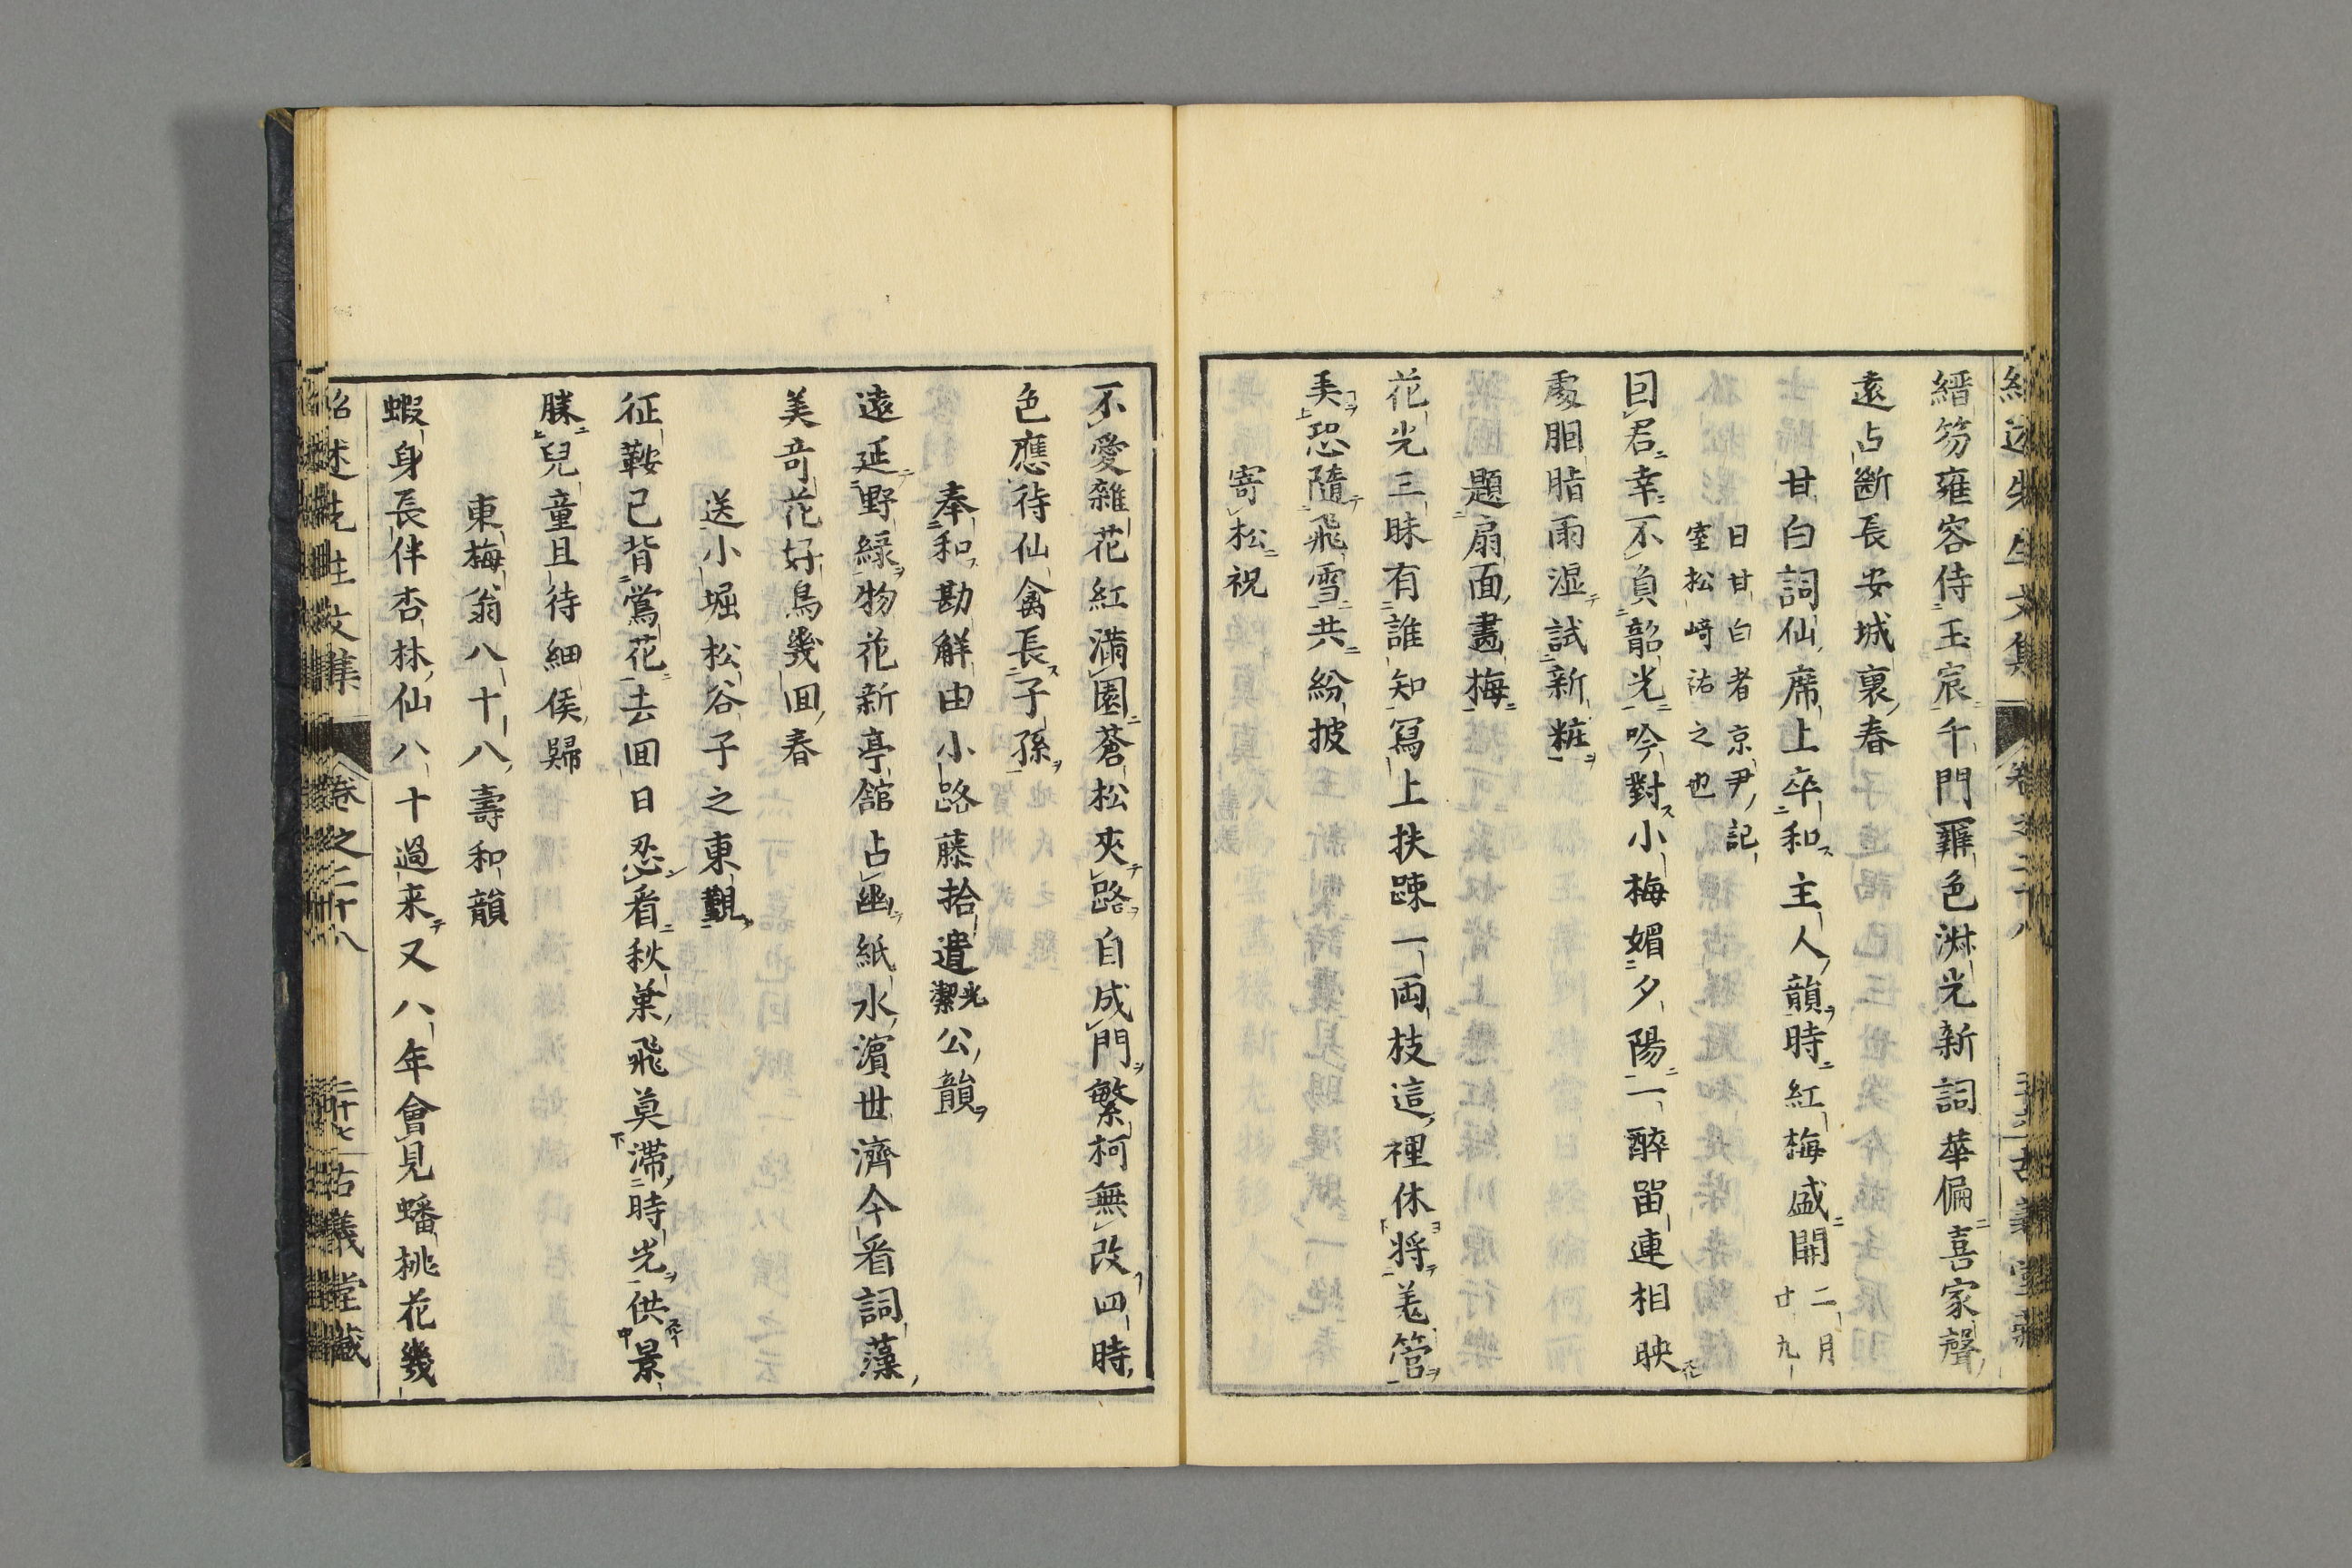 縉笏雍容侍玉宸千門曙色淋光新詞華偏喜家聲
遠占斷長安城裏春
甘白詞仙席上卒和主人韻時紅梅盛開二月
廿九
日甘白者京尹記
室松崎祐之也
回君幸不負韶光吟對小梅媚夕陽一醉留連相映
處胭脂雨湿試新粧
題扇面畫梅
花光三昧有誰知冩上扶踈一両枝這裡休将羗管
美恐隨飛雪共紛披
寄松祝
不愛雜花紅満園蒼松夾路自成門繁柯無改四時
色應待仙禽長子孫
奉和勘觧由小路藤拾遺光潔公韻
遠延野緑物花新亭舘占幽紙水濵世濟今看詞藻
美竒花好鳥幾囬春
送小堀松谷子之東覲
征鞍已背鴬花去囬日忍看秋葉飛莫滞時光供景
勝兒童且待細侯歸
東梅翁八十八壽和韻
蝦身長伴杏林仙八十過来又八年會見蟠桃花幾
紹述先生文集
卷之二十八
二十七
古義堂藏